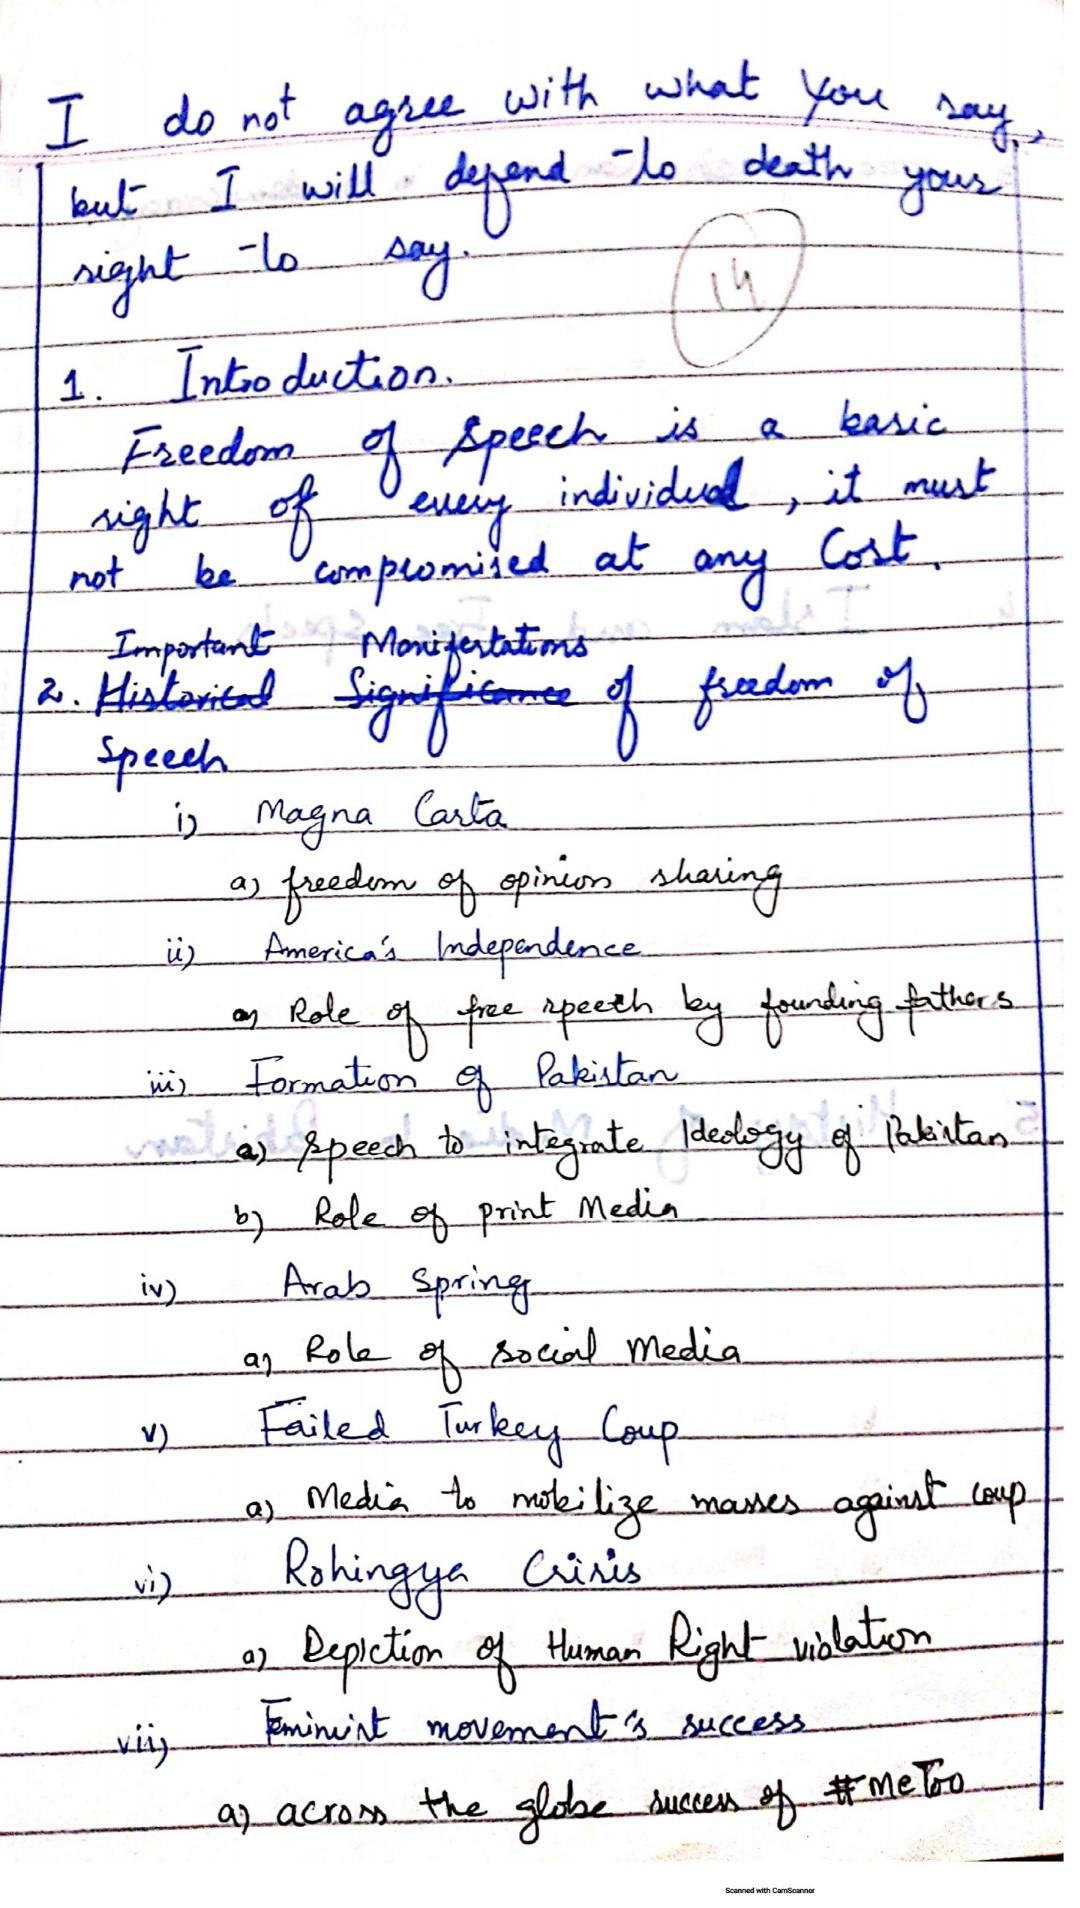 I do not agree with what you say,
but I will defend to death your
right to say.
14
1. Introduction.
Freedom of speech is a basic
right of every individual, it must
not be compromised at any Cost.
Important Manifestations
2. Historical Significance of freedom of
Speech
i) Magna Carta
a) freedom of opinion sharing
ii) America's Independence
a) Role of free speech by founding fathers
iii) Formation of Pakistan
a) speech to integrate Ideology of Pakistan
b) Role of print Media
iv) Arab Spring
a) Role of social Media
v) Failed Turkey Coup
a) Media to mobilize masses against coup
vi) Rohingya Crisis
a) Depiction of Human Right violation
vii) Feminist movement's success
a) across the globe success of #MeToo
Scanned with CamScanner